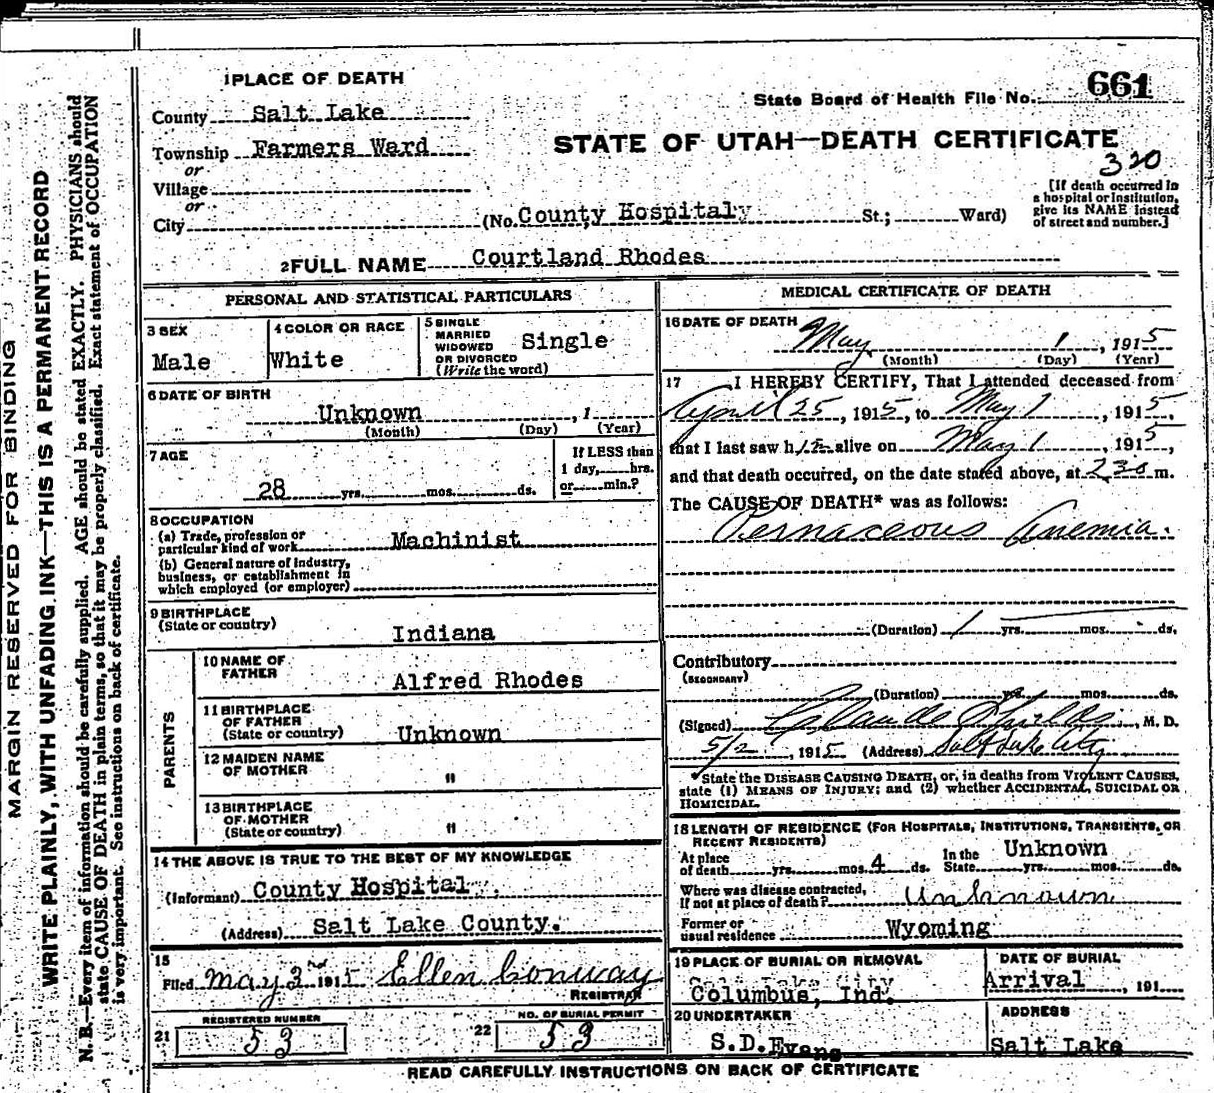 MARGIN RESERVED FOR BINDING
WRITE PLAINLY, WITH UNFADING INK—THIS IS A PERMANENT RECORD
N. B.—Every item of information should be carefully supplied. AGE should be stated EXACTLY. PHYSICIANS should
state CAUSE OF DEATH in plain terms, so that it may be properly classified. Exact statement of OCCUPATION
is very important. See instructions on back of certificate.
1 PLACE OF DEATH
County Salt Lake
Township Farmers Ward
or
Village
or
City
State Board of Health File No. 661
STATE OF UTAH—DEATH CERTIFICATE
320
[If death occurred in
a hospital or institution,
give its NAME instead
of street and number.]
(No. County Hospitaly St.; Ward)
2 FULL NAME Courtland Rhodes
PERSONAL AND STATISTICAL PARTICULARS
3 SEX
Male
4 COLOR OR RACE
White
5 SINGLE
MARRIED
WIDOWED
OR DIVORCED
(Write the word)
Single
6 DATE OF BIRTH
Unknown , 1
(Month) (Day) (Year)
7 AGE
28 yrs. mos. ds.
If LESS than
1 day, hrs.
or min.?
8 OCCUPATION
(a) Trade, profession or
particular kind of work Machinist
(b) General nature of industry,
business, or establishment in
which employed (or employer)
9 BIRTHPLACE
(State or country)
Indiana
PARENTS
10 NAME OF
FATHER
Alfred Rhodes
11 BIRTHPLACE
OF FATHER
(State or country) Unknown
12 MAIDEN NAME
OF MOTHER "
13 BIRTHPLACE
OF MOTHER
(State or country) "
14 THE ABOVE IS TRUE TO THE BEST OF MY KNOWLEDGE
(Informant) County Hospital
(Address) Salt Lake County.
15
Filed May 2nd 1915 Ellen Conway
REGISTRAR
REGISTERED NUMBER
21 53
NO. OF BURIAL PERMIT
22 53
MEDICAL CERTIFICATE OF DEATH
16 DATE OF DEATH
May 1, 1915
(Month) (Day) (Year)
17 I HEREBY CERTIFY, That I attended deceased from
April 25, 1915, to May 1, 1915,
that I last saw him alive on May 1, 1915,
and that death occurred, on the date stated above, at 230 m.
The CAUSE OF DEATH* was as follows:
Pernaceous Anemia.
(Duration) 1 yrs. mos. ds.
Contributory
(SECONDARY)
(Duration) yrs. mos. ds.
(Signed) M. D.
5/2, 1915 (Address) Salt Lake City
*State the DISEASE CAUSING DEATH, or, in deaths from VIOLENT CAUSES,
state (1) MEANS OF INJURY; and (2) whether ACCIDENTAL, SUICIDAL OR
HOMICIDAL.
18 LENGTH OF RESIDENCE (FOR HOSPITALS, INSTITUTIONS, TRANSIENTS, OR
RECENT RESIDENTS)
At place
of death yrs. mos. 4 ds.
In the
State Unknown yrs. mos. ds.
Where was disease contracted,
if not at place of death? Unknown
Former or
usual residence Wyoming
19 PLACE OF BURIAL OR REMOVAL
Columbus, Ind.
DATE OF BURIAL
Arrival, 191
20 UNDERTAKER
S.D. Evans
ADDRESS
Salt Lake
READ CAREFULLY INSTRUCTIONS ON BACK OF CERTIFICATE